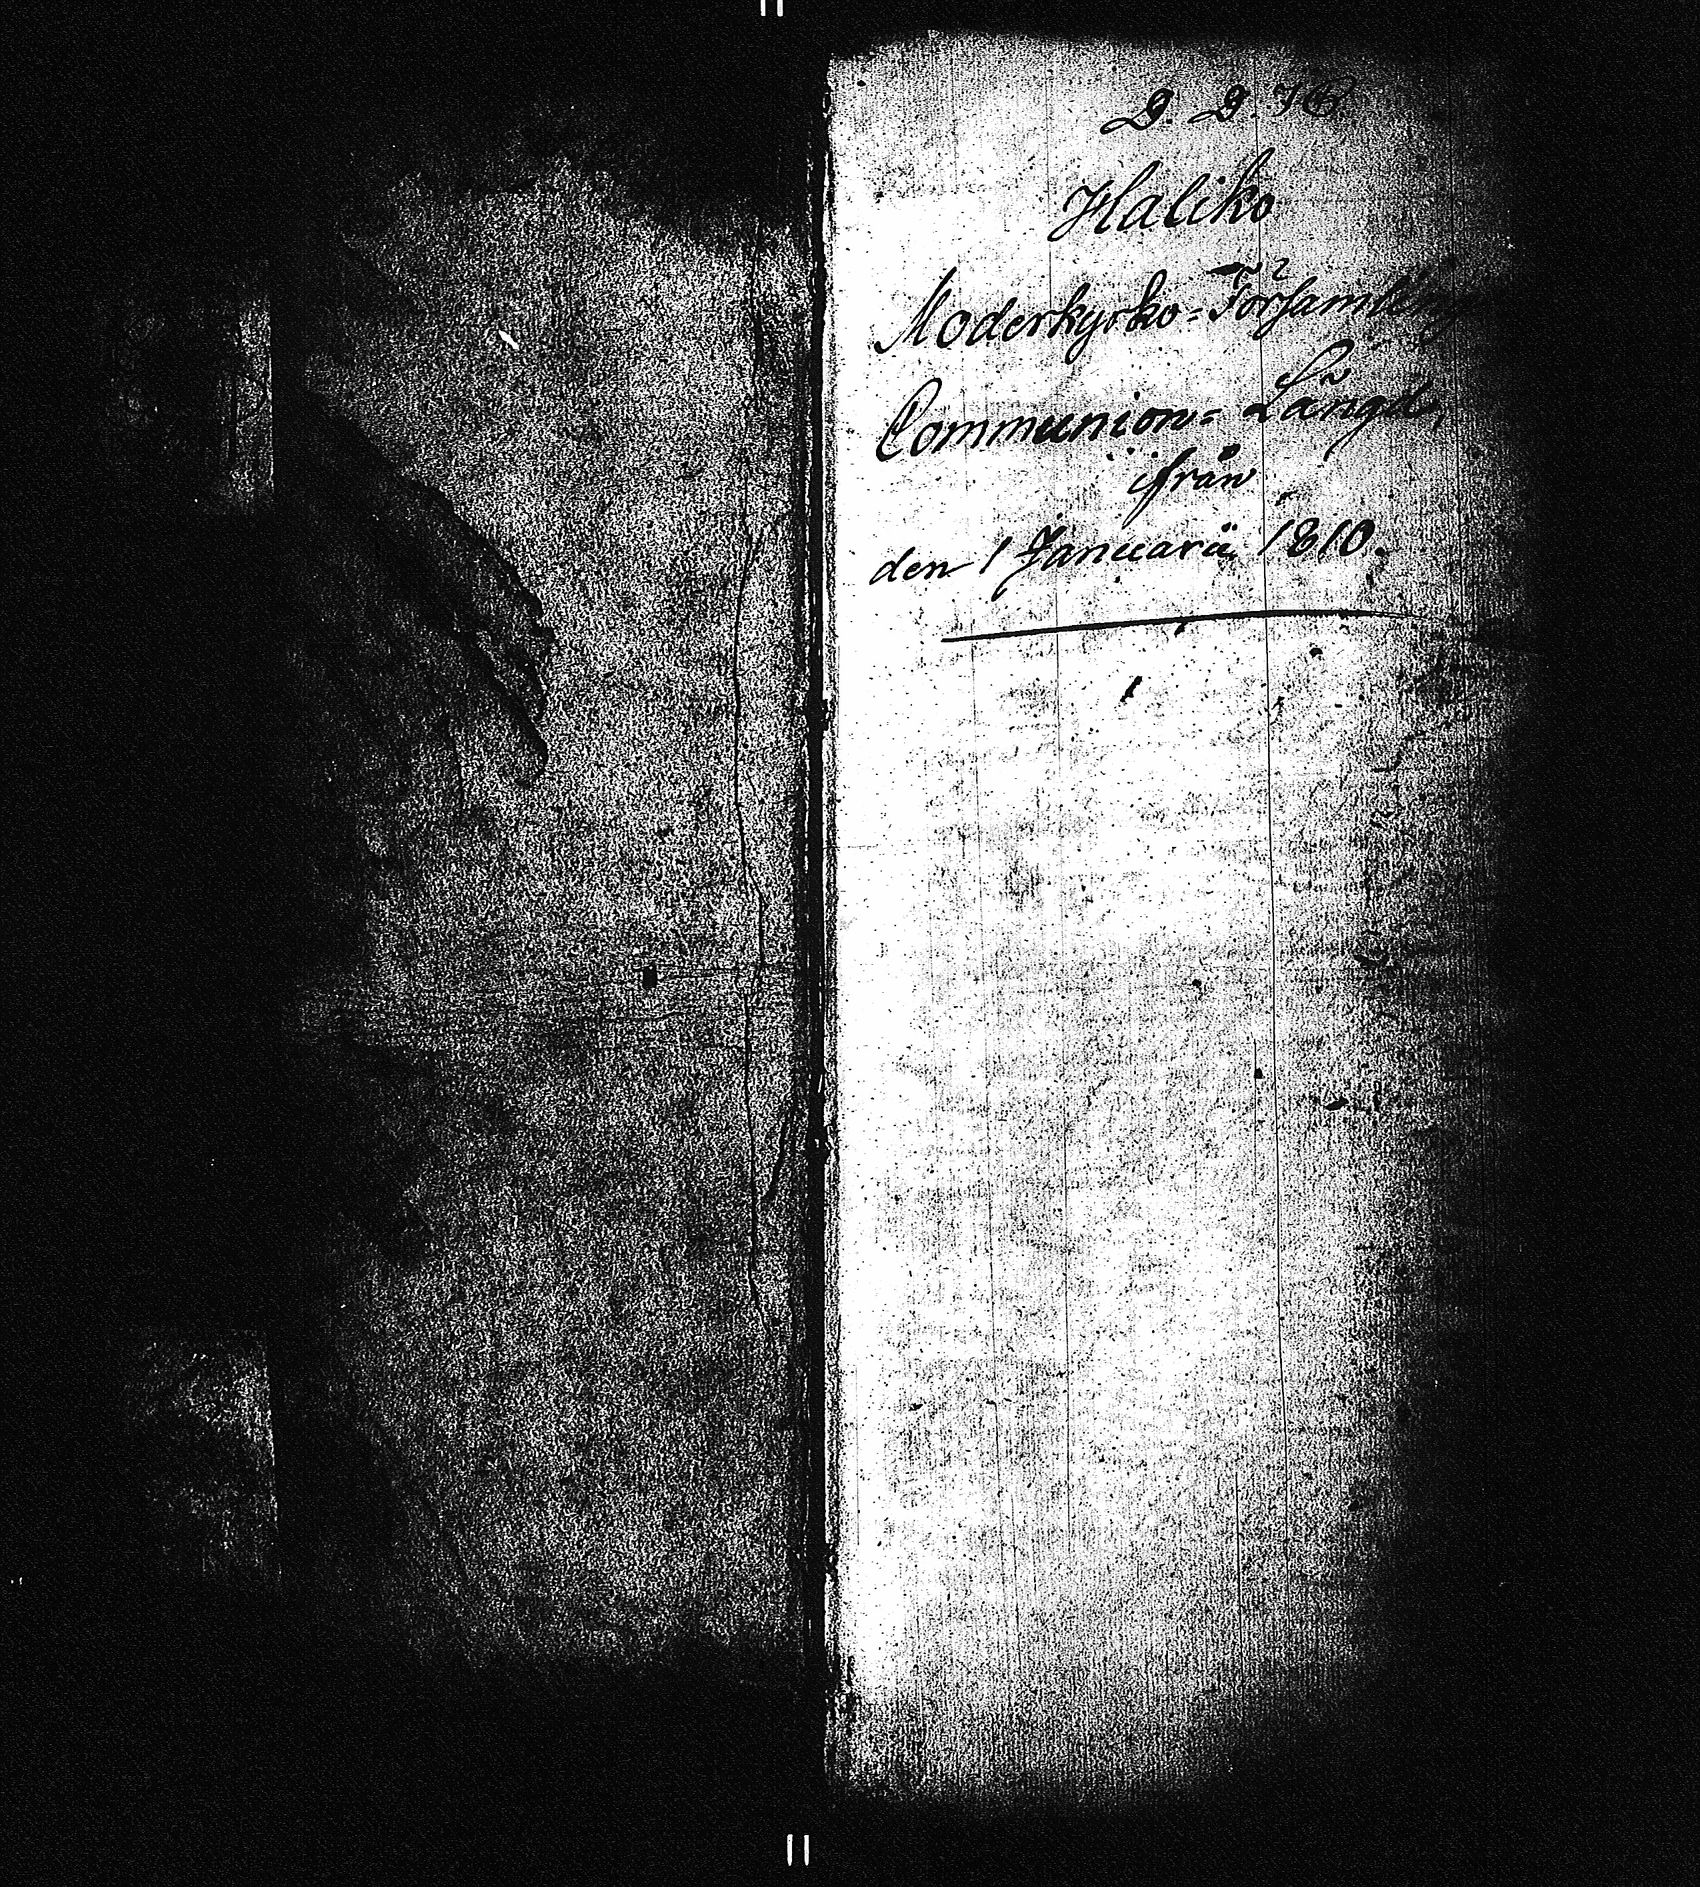 Haliko
Moderkyrko=Församlings
Communion=Längd,
ifrån
den 1 Januarii 1810.